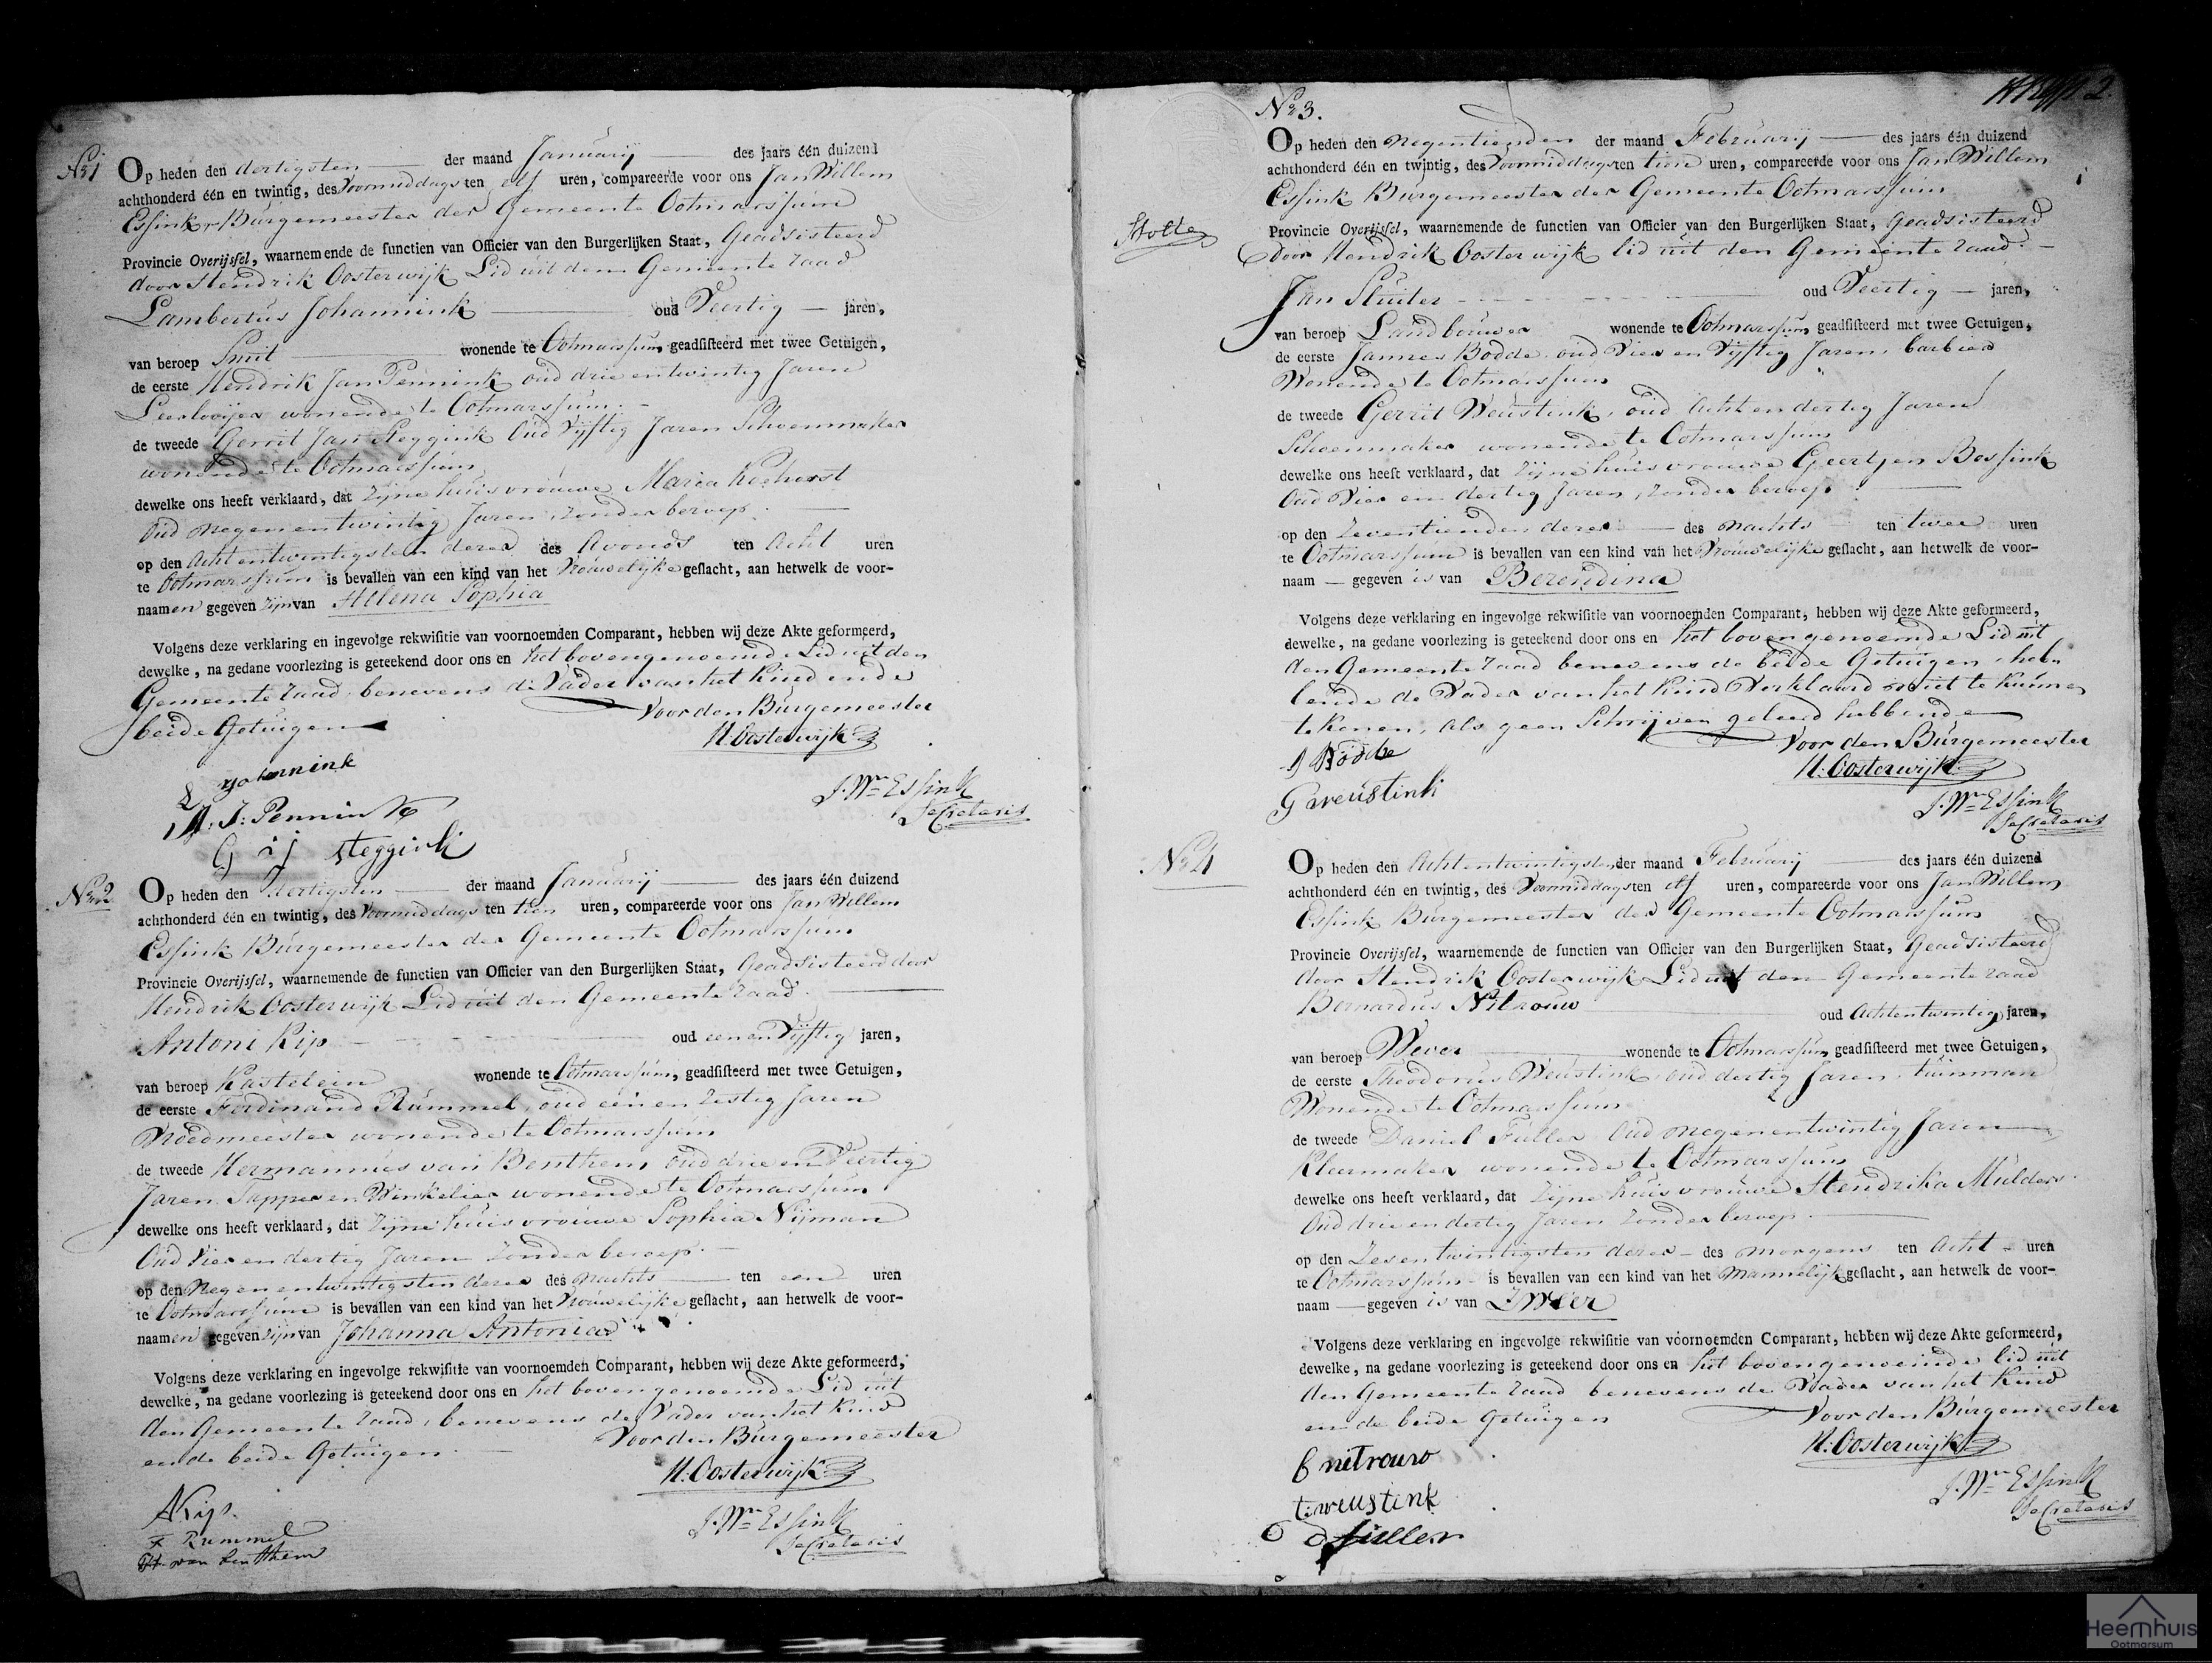 No 1
Op heden den dertigsten der maand Januarij des jaars één duizend
achthonderd één en twintig, des Voormiddags ten elf uren, compareerde voor ons Jan Willem
Essink Burgemeester der Gemeente Ootmarssum
Provincie Overijssel, waarnemende de functien van Officier van den Burgerlijken Staat, Geadsisteerd
door Hendrik Oosterwijk Lid uit den Gemeente raad
Lambertus Johannink oud Veertig jaren,
van beroep Smit wonende te Ootmarssum, geadsisteerd met twee Getuigen,
de eerste Hendrik Jan Pennink oud drie entwintig Jaren
Leerlooijer wonende te Ootmarssum.
de tweede Gerrit Jan Steggink Oud Vijftig Jaren Schoenmaker
wonende te Ootmarssum
dewelke ons heeft verklaard, dat zijne huisvrouwe Maria Koehorst
Oud Negenentwintig Jaren zonder beroep.
op den Achtentwintigsten dezer des Avonds ten Acht uren
te Ootmarssum is bevallen van een kind van het Vrouwelijke geslacht, aan hetwelk de voor-
naamen gegeven zijn van Helena Sophia
Volgens deze verklaring en ingevolge rekwisitie van voornoemden Comparant, hebben wij deze Akte geformeerd,
dewelke, na gedane voorlezing is geteekend door ons en het bovengenoemde Lid uit den
Gemeente raad, benevens de Vader van het Kind en de
beide Getuigen
Voor den Burgemeester
H: Oosterwijk
L Johannink
H: J: Pennink
G J Steggink
J. Wm Essink
Secretaris
No 2
Op heden den dertigsten der maand Januarij des jaars één duizend
achthonderd één en twintig, des Voormiddags ten tien uren, compareerde voor ons Jan Willem
Essink Burgemeester der Gemeente Ootmarssum
Provincie Overijssel, waarnemende de functien van Officier van den Burgerlijken Staat, Geadsisteerd door
Hendrik Oosterwijk Lid uit den Gemeente raad
Antoni Kip oud een en Vijftig jaren,
van beroep Kastelein wonende te Ootmarssum, geadsisteerd met twee Getuigen,
de eerste Ferdinand Rummel, oud één en zestig Jaren
Vroedmeester wonende te Ootmarssum
de tweede Hermannus van Benthem oud drie en Veertig
Jaren Tapper en Winkelier wonende te Ootmarssum
dewelke ons heeft verklaard, dat zijne huisvrouwe Sophia Nijman
Oud Vier en dertig Jaren zonder beroep.
op den Negen entwintigsten dezer des nachts ten een uren
te Ootmarssum is bevallen van een kind van het Vrouwelijke geslacht, aan hetwelk de voor-
naamen gegeven zijn van Johanna Antonia
Volgens deze verklaring en ingevolge rekwisitie van voornoemden Comparant, hebben wij deze Akte geformeerd,
dewelke, na gedane voorlezing is geteekend door ons en het bovengenoemde Lid uit
den Gemeente raad, benevens de Vader van het Kind
en de beide Getuigen.
Voor den Burgemeester
H: Oosterwijk
A Kip.
F Rummel
H van benthem
J. Wm Essink
Secretaris
2
No 3.
Op heden den negentienden der maand Februarij des jaars één duizend
achthonderd één en twintig, des Voormiddags ten tien uren, compareerde voor ons Jan Willem
Essink Burgemeester der Gemeente Ootmarssum
Stolte
Provincie Overijssel, waarnemende de functien van Officier van den Burgerlijken Staat, Geadsisteerd
door Hendrik Oosterwijk lid uit den Gemeente raad.
Jan Sluiter oud Veertig jaren,
van beroep Landbouwer wonende te Ootmarssum, geadsisteerd met twee Getuigen,
de eerste Jannes Bodde oud Vier en Vijftig Jaren, barbier
Wonende te Ootmarssum
de tweede Gerrit Weustink, oud Acht en dertig Jaren
Schoenmaker wonende te Ootmarssum
dewelke ons heeft verklaard, dat zijne huisvrouwe Geertjen Bossink
Oud Vier en dertig Jaren, zonder beroep
op den Zeventienden dezer des nachts ten twee uren
te Ootmarssum is bevallen van een kind van het Vrouwelijke geslacht, aan hetwelk de voor-
naam gegeven is van Berendina
Volgens deze verklaring en ingevolge rekwisitie van voornoemden Comparant, hebben wij deze Akte geformeerd,
dewelke, na gedane voorlezing is geteekend door ons en het bovengenoemde Lid uit
den Gemeente raad benevens de beide Getuigen heb-
bende de Vader van het Kind Verklaard niet te kunnen
tekenen, als geen Schrijven geleerd hebbende
Voor den Burgemeester
H: Oosterwijk
J Bodde
G weustink
J. Wm Essink
Secretaris
No 4
Op heden den Achtentwintigsten der maand Februarij des jaars één duizend
achthonderd één en twintig, des Voormiddags ten elf uren, compareerde voor ons Jan Willem
Essink Burgemeester der Gemeente Ootmarssum
Provincie Overijssel, waarnemende de functien van Officier van den Burgerlijken Staat, Geadsisteerd
door Hendrik Oosterwijk Lid uit den Gemeente raad
Bernardus Nitrouw oud Achtentwintig jaren,
van beroep Wever wonende te Ootmarssum, geadsisteerd met twee Getuigen,
de eerste Theodorus Weustink, oud dertig Jaren, tuinman
Wonende te Ootmarssum
de tweede Daniel Fuller Oud negenentwintig Jaren
Kleermaker wonende te Ootmarssum
dewelke ons heeft verklaard, dat zijne huisvrouwe Hendrika Mulders
Oud drie en dertig Jaren zonder beroep.
op den Zesentwintigsten dezer des morgens ten Acht uren
te Ootmarssum is bevallen van een kind van het Mannelijk geslacht, aan hetwelk de voor-
naam gegeven is van Zweer
Volgens deze verklaring en ingevolge rekwisitie van voornoemden Comparant, hebben wij deze Akte geformeerd,
dewelke, na gedane voorlezing is geteekend door ons en het bovengenoemde lid uit
den Gemeente raad benevens de Vader van het Kind
en de beide Getuigen
Voor den Burgemeester
H: Oosterwijk
B nitrouw
t: weustink
D fuller
J. Wm Essink
Secretaris
Heemhuis
Ootmarsum